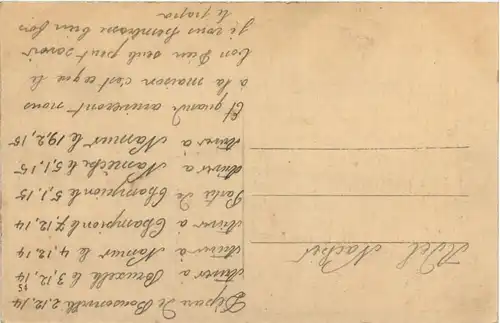 Dépar de Bousonville 2.12.14
Ariver a Bruxelle le 3,12,14
15
Ariver à Namur le 4,12,14
Ariver a Champion le 7,12,14
Partit de Champion le 5,1,15
Ariver à Namèche le 5,1.15
Ariver à Namur le 19,2,15
Et quand ariveront nous
à la maison c'est ce que le
bon Dieu seule peut savoir
je vous embrasse bien fois
le papa